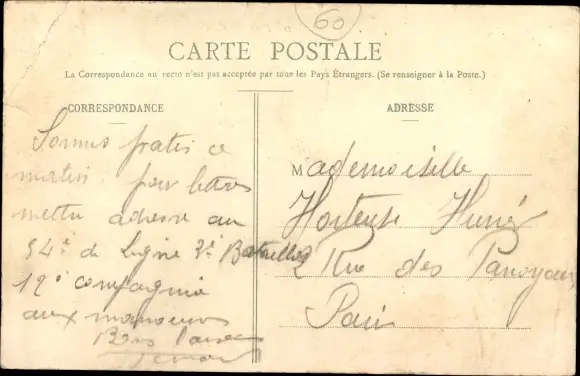 60
CARTE POSTALE
La Correspondance au recto n'est pas acceptée par tous les Pays Étrangers. (Se renseigner à la Poste.)
CORRESPONDANCE
Sommes partis ce
matin pour lettres
mettre adresse au
54e de Ligne 3e Bataillon
12e compagnie
aux manoeuvres
Bons
ADRESSE
Mademoiselle
Hortense
2 Rue des Panoyaux
Paris